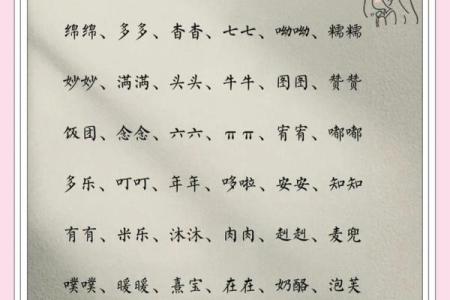 绵绵、多多、杳杳、七七、呦呦、糯糯
妙妙、满满、头头、牛牛、图图、赞赞
饭团、念念、六六、ππ、宥宥、嘟嘟
多乐、叮叮、年年、哆啦、安安、知知
有有、米乐、沐沐、肉肉、赳赳、麦兜
噗噗、暖暖、熹宝、在在、奶酪、泡芙